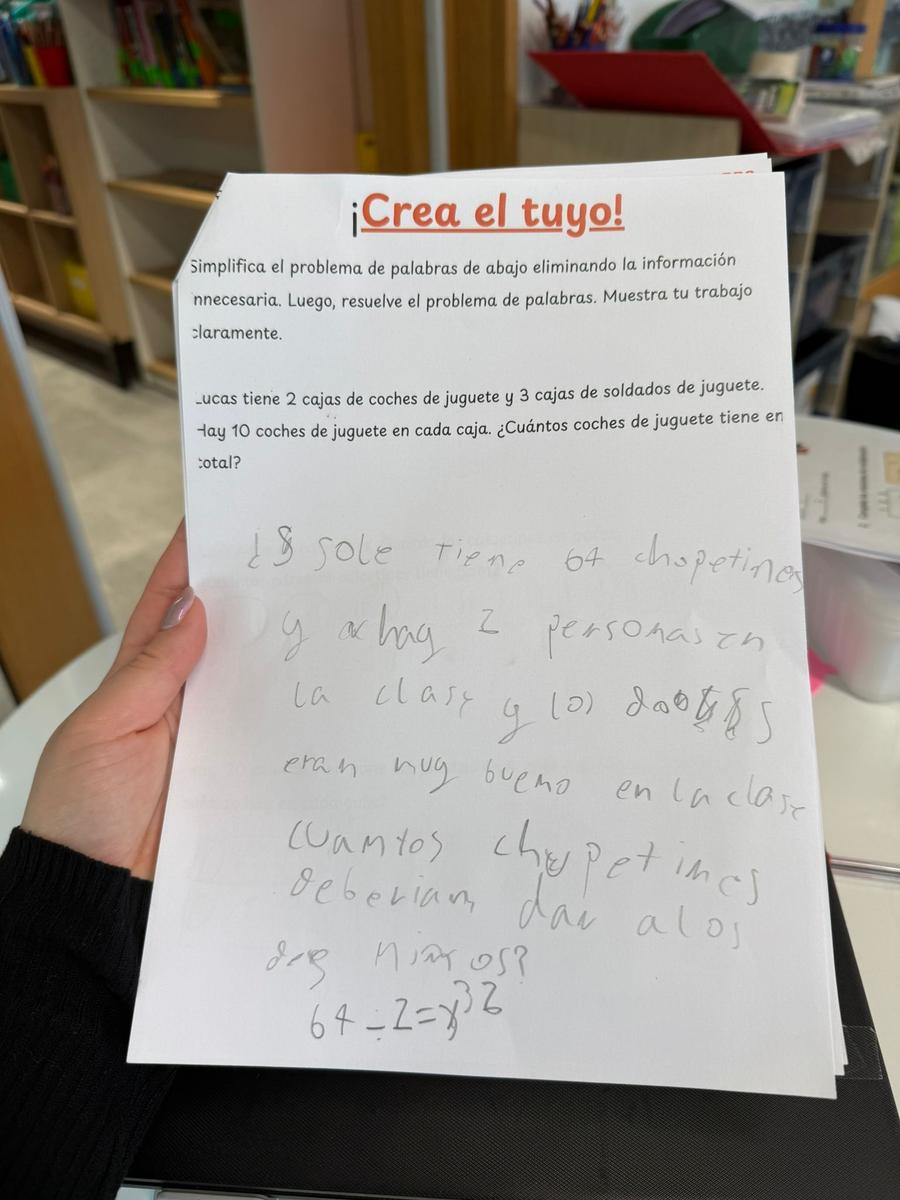 ¡Crea el tuyo!
Simplifica el problema de palabras de abajo eliminando la información
nnecesaria. Luego, resuelve el problema de palabras. Muestra tu trabajo
claramente.
Lucas tiene 2 cajas de coches de juguete y 3 cajas de soldados de juguete.
Hay 10 coches de juguete en cada caja. ¿Cuántos coches de juguete tiene en
total?
¿ Sole tiene 64 chopetines
y hay 2 personas en
la clase y los dos
eran muy bueno en la clase
cuantos chupetines
deberian dar a los
dos
64 ÷ 2 = 32